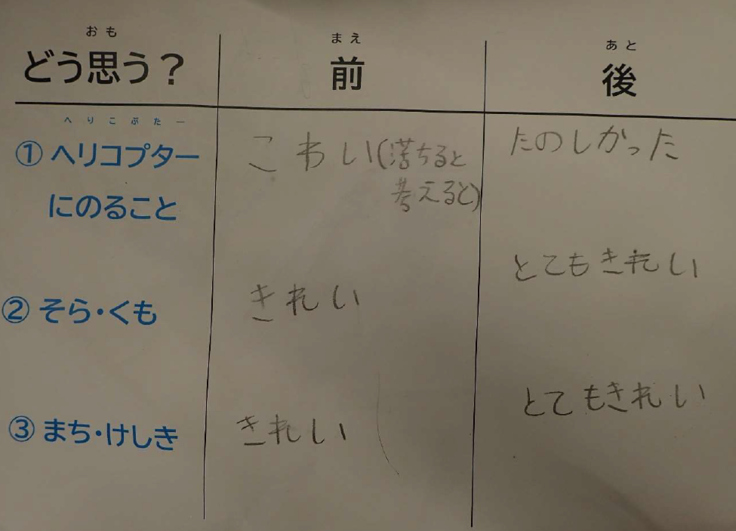 おも
どう思う?
まえ
前
あと
後
へりこぷたー
① ヘリコプター
にのること
こわい(落ちると
考えると)
たのしかった
② そら・くも
きれい
とてもきれい
③ まち・けしき
きれい
とてもきれい